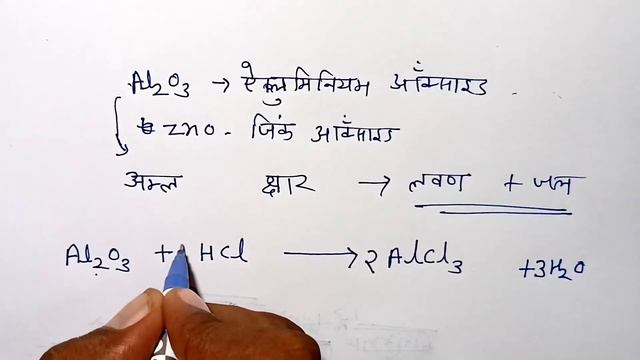 Al₂O₃ → ऐल्युमिनियम ऑक्साइड
ZnO - जिंक ऑक्साइड
अम्ल क्षार → लवण + जल
Al₂O₃ + HCl → 2AlCl₃ + 3H₂O